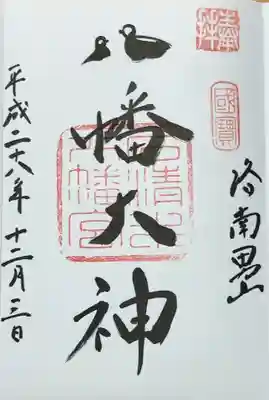 奉拝
國寶
洛南男山
八幡大神
石清水
八幡宮
平成二十八年十二月三日